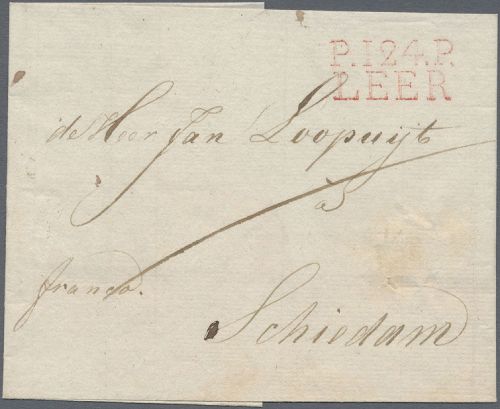 P.124.P.
LEER
de Heer Jan Loopuijt
a
franco.
Schiedam